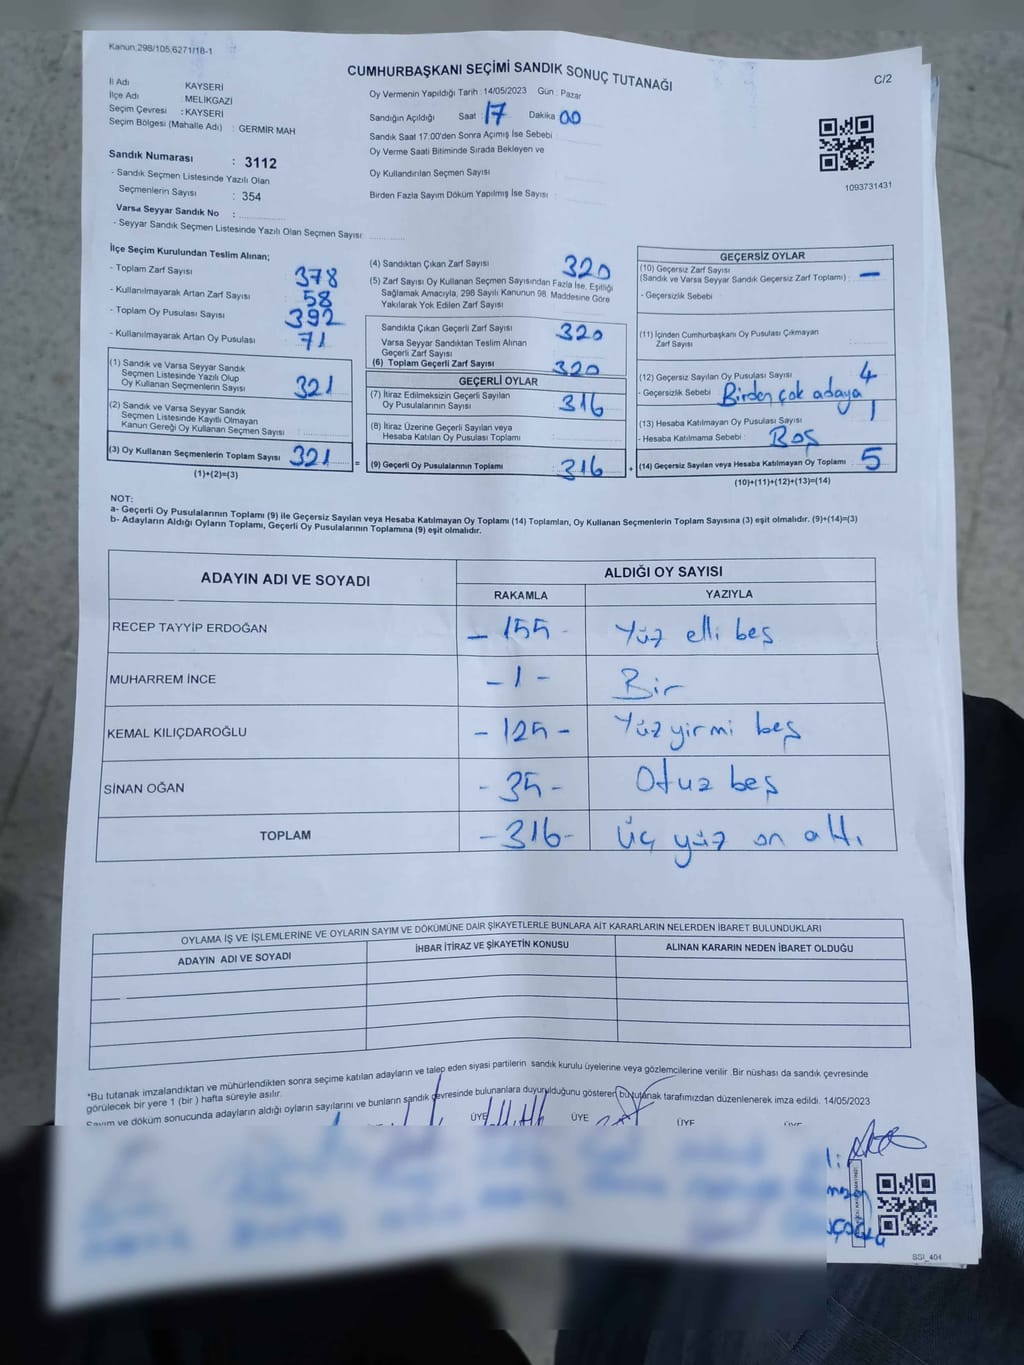 Kanun.298/105,6271/18-1
CUMHURBAŞKANI SEÇİMİ SANDIK SONUÇ TUTANAĞI
C/2
İl Adı KAYSERİ
İlçe Adı : MELİKGAZİ
Seçim Çevresi : KAYSERİ
Seçim Bölgesi (Mahalle Adı) : GERMİR MAH
Oy Vermenin Yapıldığı Tarih : 14/05/2023 Gün : Pazar
Sandığın Açıldığı Saat 17 Dakika 00
Sandık Saat 17:00'den Sonra Açımış İse Sebebi
Oy Verme Saati Bitiminde Sırada Bekleyen ve
Oy Kullandırılan Seçmen Sayısı
Birden Fazla Sayım Döküm Yapılmış İse Sayısı
1093731431
Sandık Numarası : 3112
- Sandık Seçmen Listesinde Yazılı Olan
Seçmenlerin Sayısı : 354
Varsa Seyyar Sandık No :
- Seyyar Sandık Seçmen Listesinde Yazılı Olan Seçmen Sayısı:
İlçe Seçim Kurulundan Teslim Alınan;
- Toplam Zarf Sayısı 378
- Kullanılmayarak Artan Zarf Sayısı : 58
- Toplam Oy Pusulası Sayısı 392
- Kullanılmayarak Artan Oy Pusulası 71
(1) Sandık ve Varsa Seyyar Sandık
Seçmen Listesinde Yazılı Olup
Oy Kullanan Seçmenlerin Sayısı 321
(2) Sandık ve Varsa Seyyar Sandık
Seçmen Listesinde Kayıtlı Olmayan
Kanun Gereği Oy Kullanan Seçmen Sayısı :
(3) Oy Kullanan Seçmenlerin Toplam Sayısı 321 =
(1)+(2)=(3)
(4) Sandıktan Çıkan Zarf Sayısı 320
(5) Zarf Sayısı Oy Kullanan Seçmen Sayısından Fazla İse, Eşitliği
Sağlamak Amacıyla, 298 Sayılı Kanunun 98. Maddesine Göre
Yakılarak Yok Edilen Zarf Sayısı
Sandıkla Çıkan Geçerli Zarf Sayısı 320
Varsa Seyyar Sandıktan Teslim Alınan
Geçerli Zarf Sayısı
(6) Toplam Geçerli Zarf Sayısı 320
GEÇERLİ OYLAR
(7) İtiraz Edilmeksizin Geçerli Sayılan
Oy Pusulalarının Sayısı 316
(8) İtiraz Üzerine Geçerli Sayılan veya
Hesaba Katılan Oy Pusulası Toplamı
(9) Geçerli Oy Pusulalarının Toplamı 316 +
GEÇERSİZ OYLAR
(10) Geçersiz Zarf Sayısı
(Sandık ve Varsa Seyyar Sandık Geçersiz Zarf Toplamı) : —
- Geçersizlik Sebebi
(11) İçinden Cumhurbaşkanı Oy Pusulası Çıkmayan
Zarf Sayısı
(12) Geçersiz Sayılan Oy Pusulası Sayısı 4
- Geçersizlik Sebebi Birden çok adaya
(13) Hesaba Katılmayan Oy Pusulası Sayısı 1
- Hesaba Katılmama Sebebi : Boş
(14) Geçersiz Sayılan veya Hesaba Katılmayan Oy Toplamı : 5
(10)+(11)+(12)+(13)=(14)
NOT:
a- Geçerli Oy Pusulalarının Toplamı (9) ile Geçersiz Sayılan veya Hesaba Katılmayan Oy Toplamı (14) Toplamları, Oy Kullanan Seçmenlerin Toplam Sayısına (3) eşit olmalıdır. (9)+(14)=(3)
b- Adayların Aldığı Oyların Toplamı, Geçerli Oy Pusulalarının Toplamına (9) eşit olmalıdır.
ADAYIN ADI VE SOYADI ALDIĞI OY SAYISI
RAKAMLA YAZIYLA
RECEP TAYYİP ERDOĞAN - 155 - Yüz elli beş
MUHARREM İNCE - 1 - Bir
KEMAL KILIÇDAROĞLU - 125 - Yüz yirmi beş
SİNAN OĞAN - 35 - Otuz beş
TOPLAM - 316 - üç yüz on altı
OYLAMA İŞ VE İŞLEMLERİNE VE OYLARIN SAYIM VE DÖKÜMÜNE DAİR ŞİKAYETLERLE BUNLARA AİT KARARLARIN NELERDEN İBARET BULUNDUKLARI
ADAYIN ADI VE SOYADI İHBAR İTİRAZ VE ŞİKAYETİN KONUSU ALINAN KARARIN NEDEN İBARET OLDUĞU
*Bu tutanak imzalandıktan ve mühürlendikten sonra seçime katılan adayların ve talep eden siyasi partilerin sandık kurulu üyelerine veya gözlemcilerine verilir .Bir nüshası da sandık çevresinde
görülecek bir yere 1 (bir ) hafta süreyle asılır.
Sayım ve döküm sonucunda adayların aldığı oyların sayılarını ve bunların sandık çevresinde bulunanlara duyurulduğunu gösteren bu tutanak tarafımızdan düzenlenerek imza edildi. 14/05/2023
ÜYE ÜYE ÜYE
SSI_404